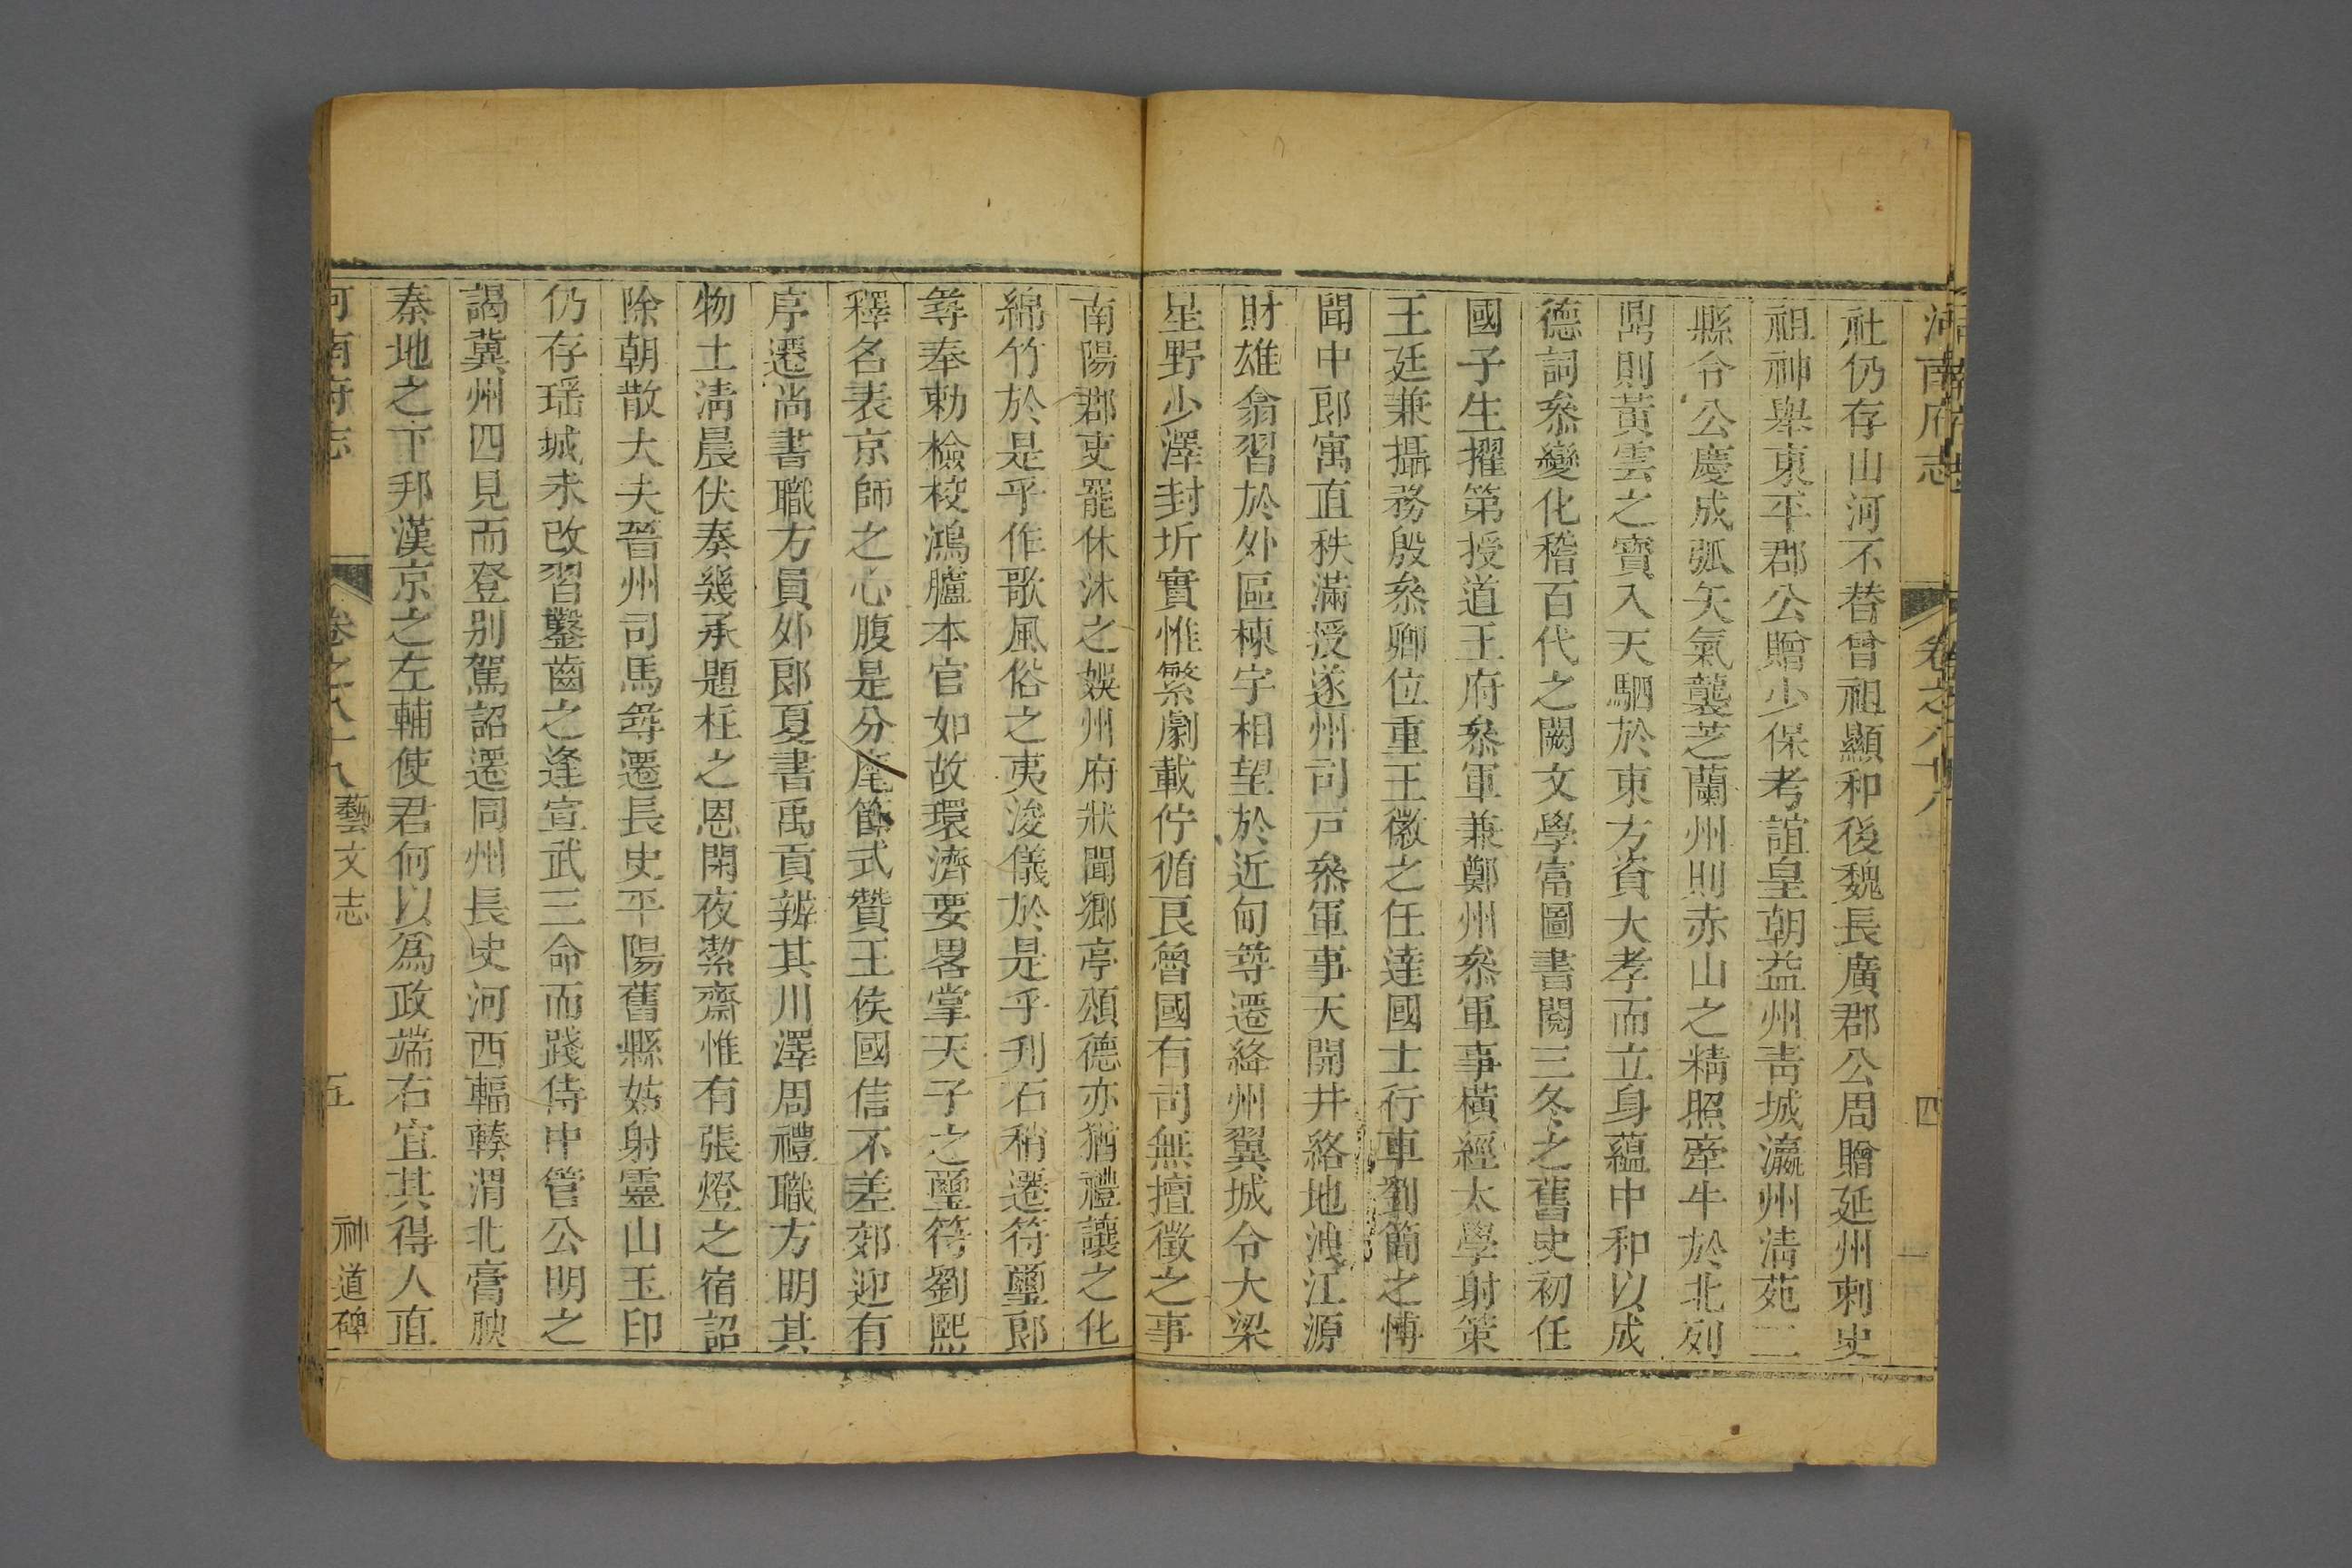 河南府志 卷之八十八 四
社仍存山河不替曾祖顯和後魏長廣郡公周贈延州刺史
祖神舉東平郡公贈少保考誼皇朝益州靑城瀛州淸苑二
縣令公慶成弧矢氣襲芝蘭州則赤山之精照牽牛於北列
鼎則黃雲之寶入天駟於東方資大孝而立身蘊中和以成
德詞叅變化稽百代之闕文學富圖書閱三冬之舊史初任
國子生擢第授道王府叅軍兼鄭州叅軍事橫經太學射策
王廷兼攝務殷叅卿位重王徽之任達國士行車劉簡之博
聞中郎寓直秩滿授遂州司戸叅軍事天開井絡地洩江源
財雄翕習於外區棟宇相望於近甸尋遷絳州翼城令大梁
星野少澤封圻實惟繁劇載佇循良魯國有司無擅徵之事
南陽郡吏罷休沐之娛州府狀聞鄉亭頌德亦猶禮讓之化
綿竹於是乎作歌風俗之夷浚儀於是乎刋石稍遷符璽郎
尋奉勅檢校鴻臚本官如故環濟要畧掌天子之璽符劉熙
釋名表京師之心腹是分麾節式贊王侯國信不差郊迎有
序遷尚書職方員外郎夏書禹貢辨其川澤周禮職方明其
物土淸晨伏奏幾承題柱之恩閑夜潔齋惟有張燈之宿詔
除朝散大夫晉州司馬尋遷長史平陽舊縣姑射靈山玉印
仍存瑶城未改習鑿齒之逢宣武三命而踐侍中管公明之
謁冀州四見而登别駕詔遷同州長史河西輻輳渭北膏腴
秦地之下邦漢京之左輔使君何以爲政端右宜其得人直
河南府志 卷之八十八 藝文志 五 神道碑